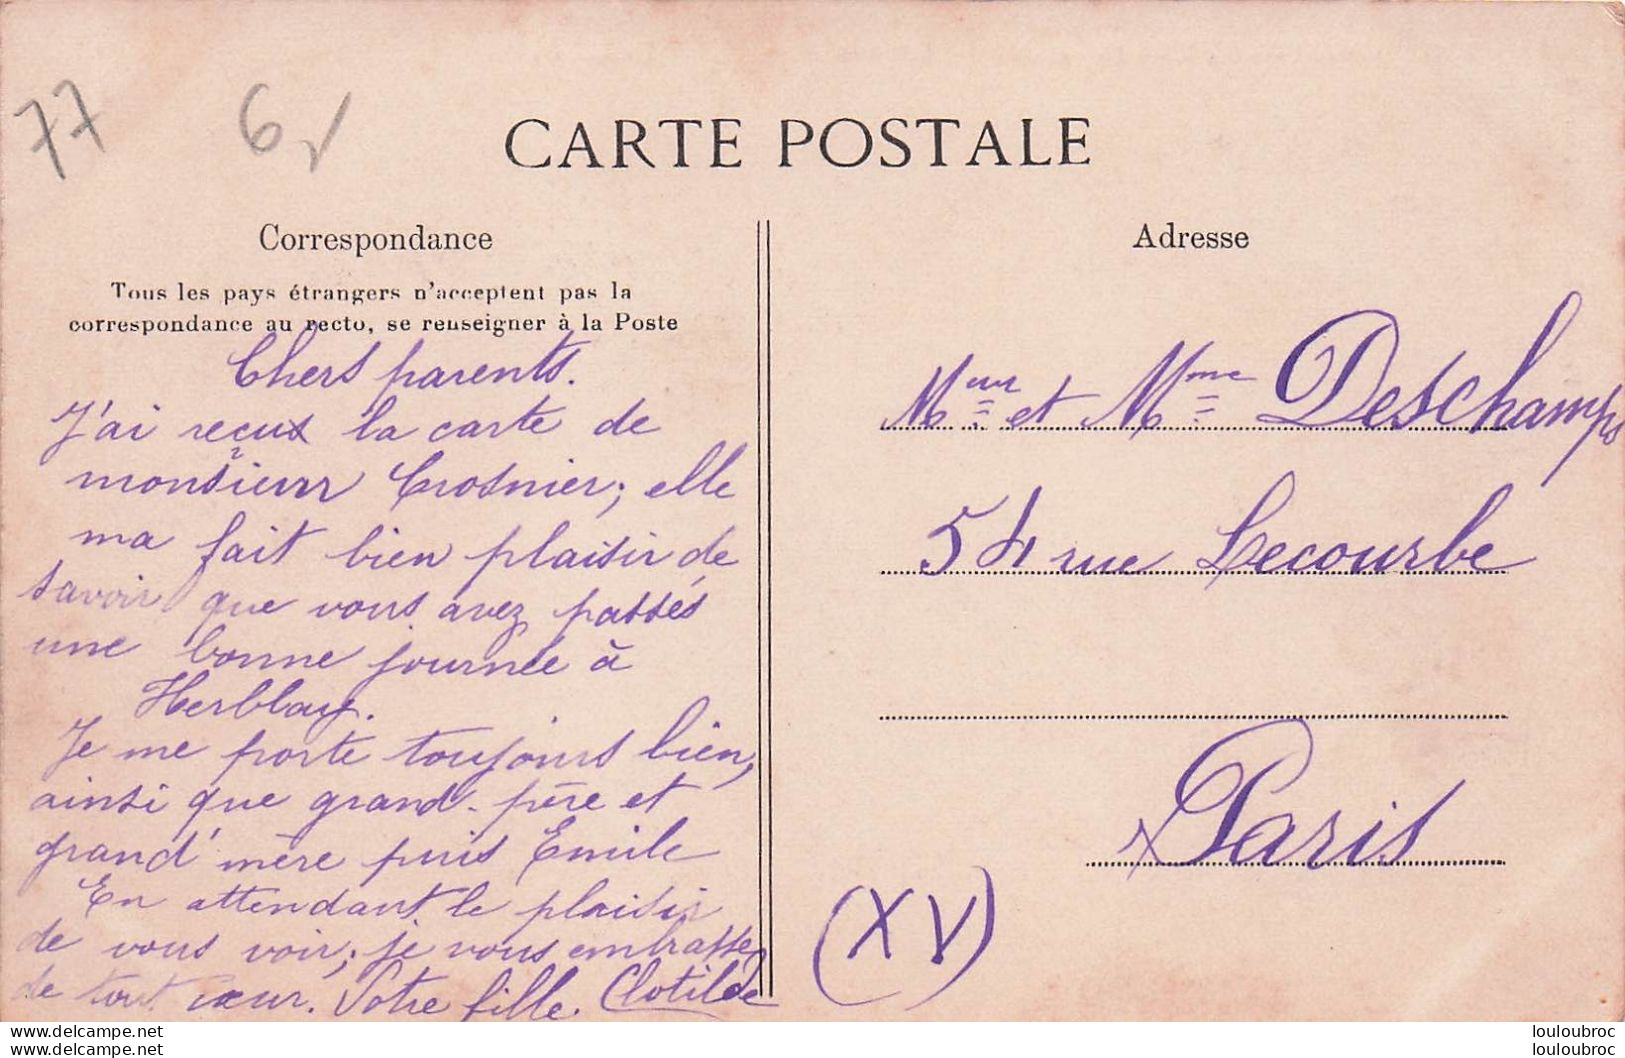 77
6
CARTE POSTALE
Correspondance
Tous les pays étrangers n'acceptent pas la
correspondance au recto, se renseigner à la Poste
Chers parents.
J'ai reçux la carte de
monsieur Crosnier; elle
ma fait bien plaisir de
savoir que vous avez passés
une bonne journée à
Herblay.
Je me porte toujours bien,
ainsi que grand-père et
grand'mère puis Emile
En attendant le plaisir
de vous voir; je vous embrasse
de tout cœur. Votre fille. Clotilde
Adresse
Meur et Mme Deschamps
54 rue Lecourbe
Paris
(XV)
www.delcampe.net
www.delcampe.net
louloubroc
louloubroc